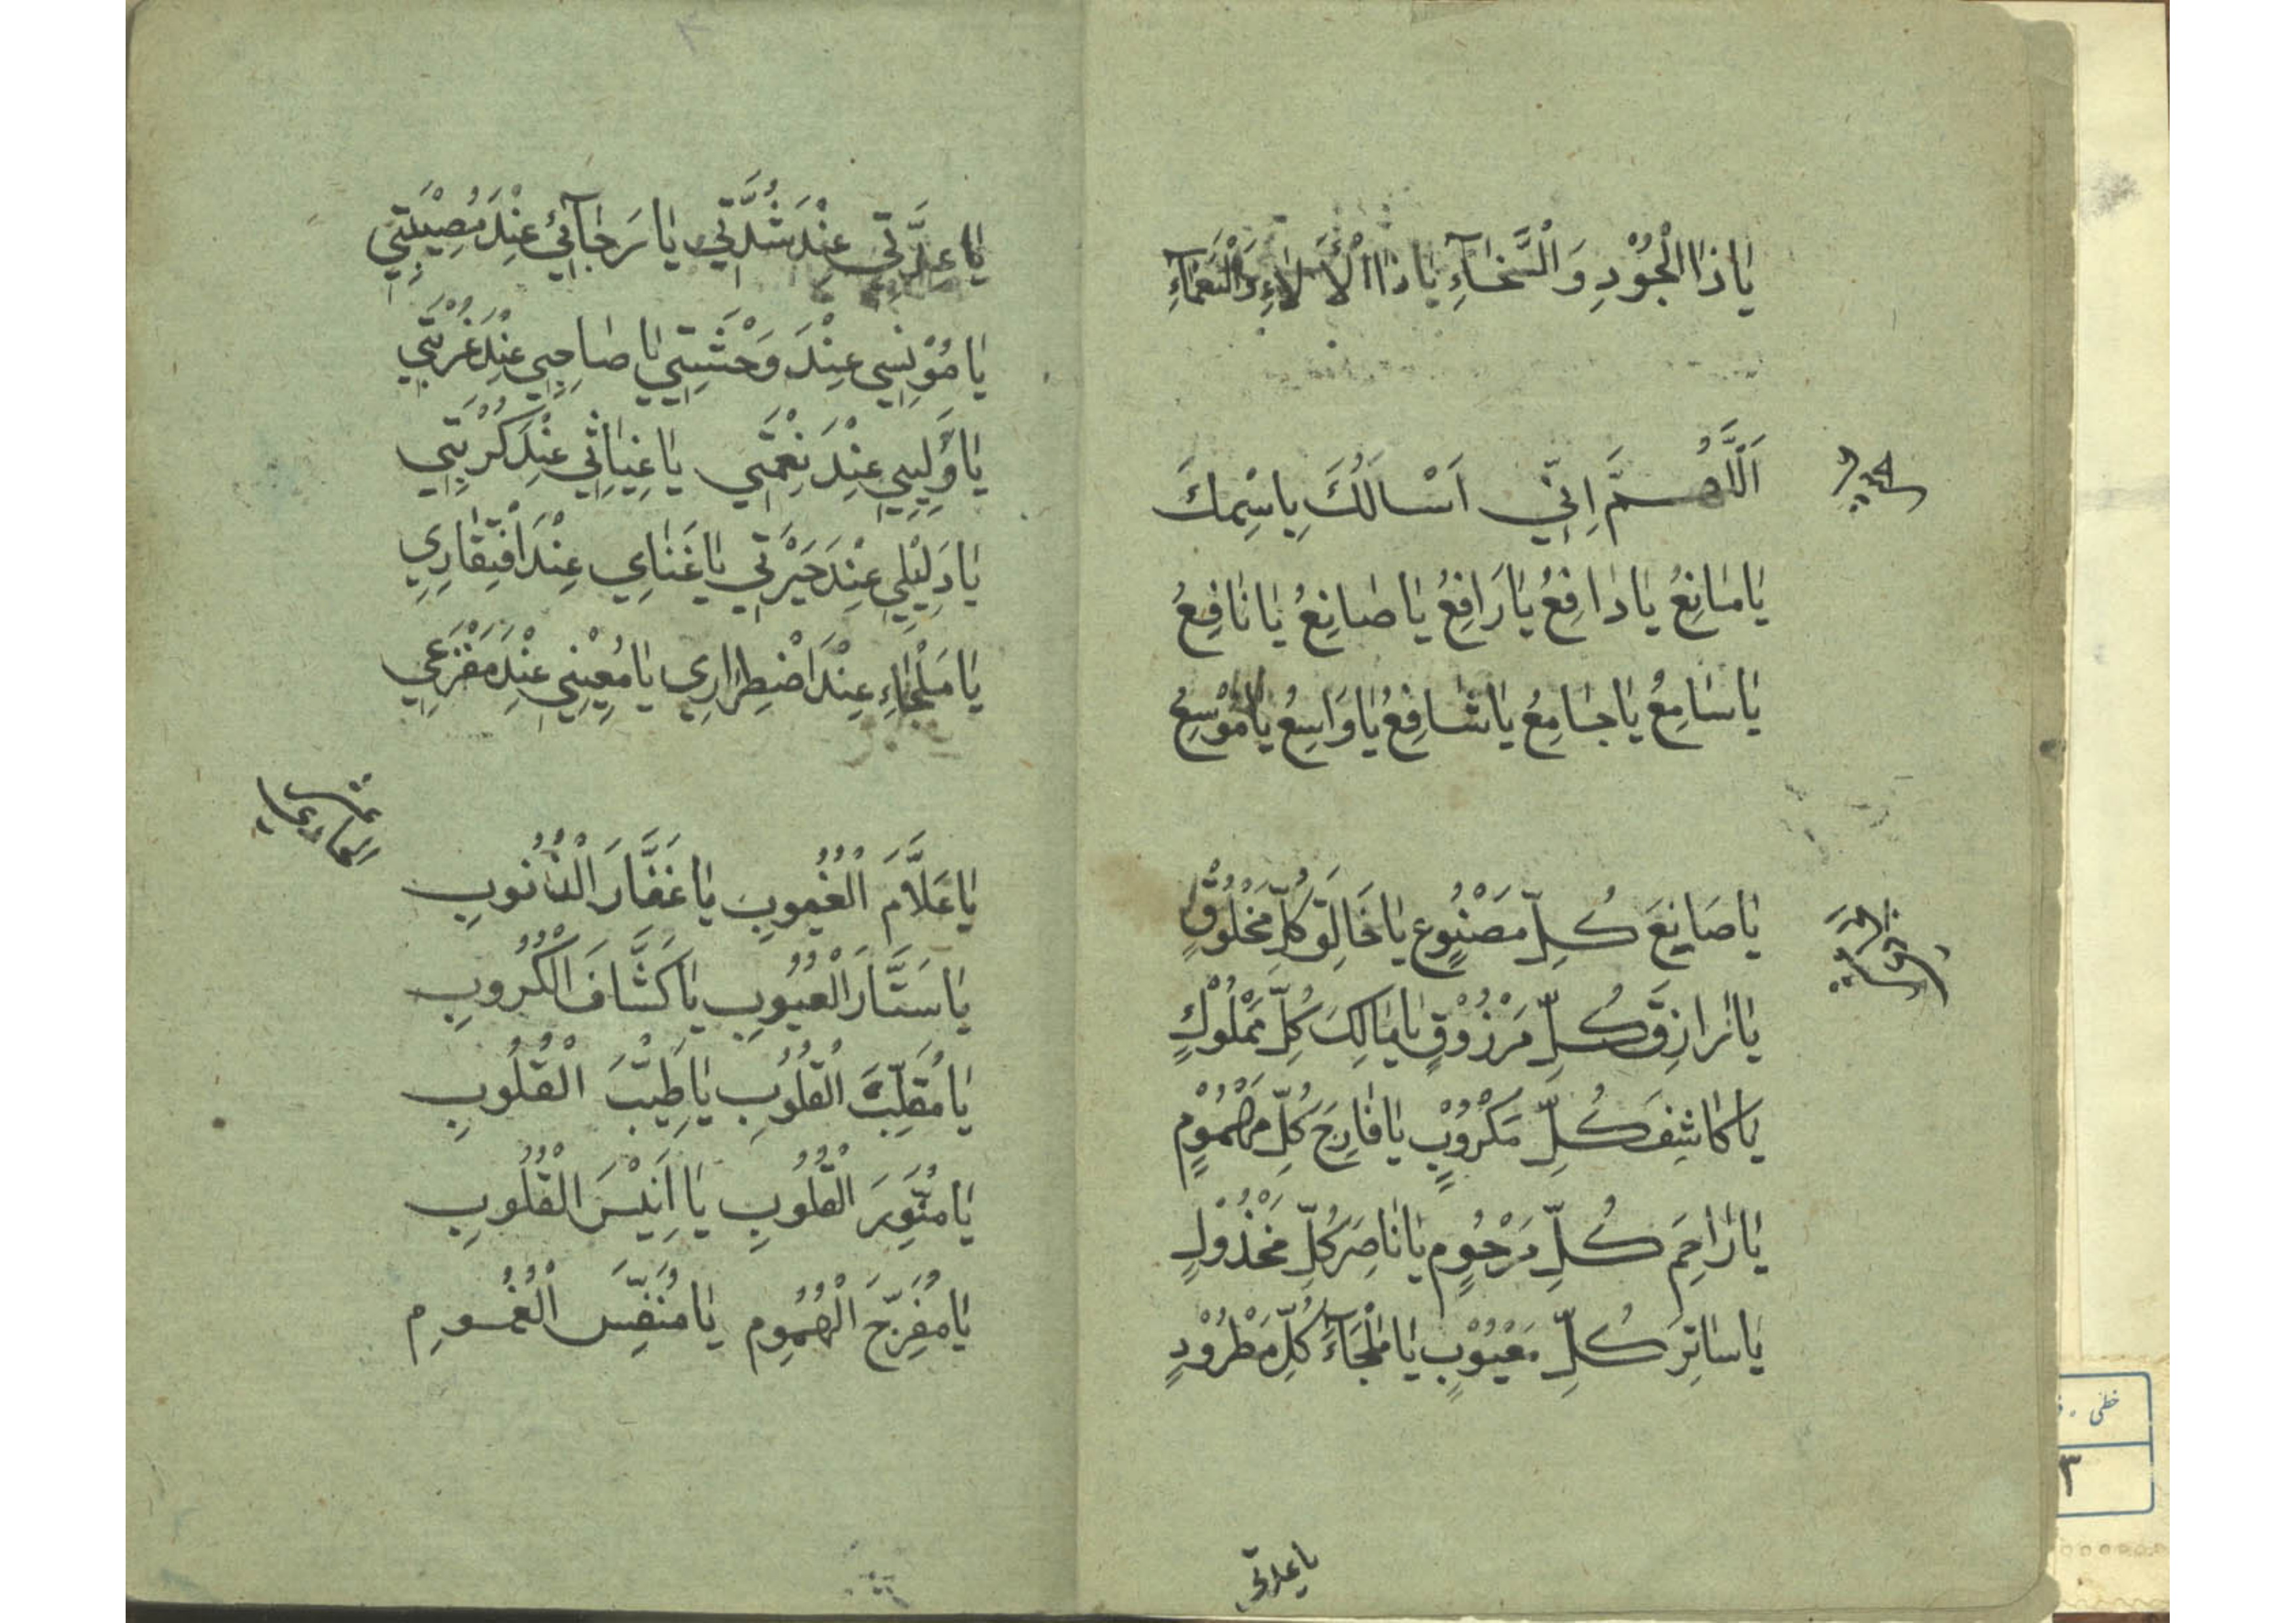 يَا ذَا الْجُوْدِ وَالْسَّخَاءِ يَا ذَا الْأَلَاءِ وَالْنَعْمَآءِ
اَللّٰهُمَّ اِنّي اَسْالُكَ بِاسْمِكَ
يَا مَانِعُ يَا دَافِعُ يَا رَافِعُ يَا صَانِعُ يَا نَافِعُ
يَا سَامِعُ يَا جَامِعُ يَا شَافِعُ يَا وَاسِعُ يَا مُوْسِعُ
يَا صَانِعَ كُلِّ مَصْنُوعٍ يَا خَالِقَ كُلِّ مَخْلُوْقٍ
يَا رَازِقَ كُلِّ مَرْزُوْقٍ يَا مَالِكَ كُلِّ مَمْلُوْكٍ
يَا كَاشِفَ كُلِّ مَكْرُوْبٍ يَا فَارِجَ كُلِّ مَهْمُوْمٍ
يَا رَاحِمَ كُلِّ مَرْحُومٍ يَا نَاصِرَ كُلِّ مَخْذُوْلٍ
يَا سَاتِرَ كُلِّ مَعْيُوْبٍ يَا مَلْجَآءَ كُلِّ مَطْرُوْدٍ
يا عدتي
يَا عِدَّتي عِنْدَ شُدَّتِي يَا رَجَآئي عِنْدَ مُصِيْبَتِي
يَا مُوْنِسِي عِنْدَ وَحْشَتِي يَا صَاحِبِي عِنْدَ غُرْبَتِي
يَا وَلِيِي عِنْدَ نِعْمَتِي يَا غِيَاثِي عِنْدَ كُرْبَتِي
يَا دَلِيْلِي عِنْدَ حَيْرَتِي يَا غَنَاىِٔ عِنْدَ افْتِقَارِي
يَا مَلْجَاءِ عِنْدَ اضْطِرَارِي يَا مُعِيْنِي عِنْدَ مَفْزَعِي
عشر
يَا عَلَّامَ الْغُيُوبِ يَا غَفَّارَ الْذُنُوبِ
يَا سَتَّارَ الْعُيُوبِ يَا كَشَّافَ الْكُرُوبِ
يَا مُقَلِّبَ الْقُلُوبِ يَا طِيْبَّ الْقُلُوبِ
يَا مُنَوِّرَ الْقُلُوبِ يَا اَنِيْسَ الْقُلُوبِ
يَا مُفَرِّجَ الْهُمُومِ يَا مُنَفِّسَ الْغُمُومِ
خطی
۳